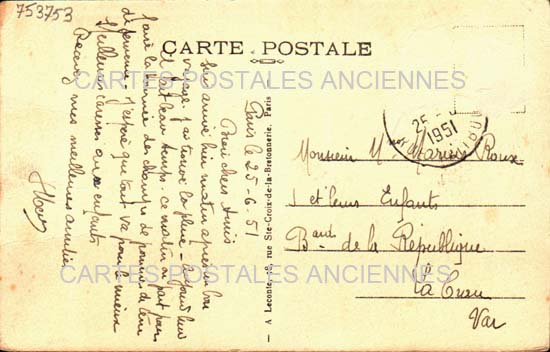 753753
CARTE POSTALE
CARTES POSTALES ANCIENNES
Paris le 25-6.51
Bien chers Amis
Suis arrivé hier matin après un bon
voyage. J'ai trouvé la pluie - aujourd'hui
il fait beau temps. ce matin on part pour
faire la tournée des champs de pommes de terre
J'espère que tout va pour le mieux
Meilleures caresses aux enfants
Recevez mes meilleures amitiés
A Leconte, 38, rue Ste-Croix-de-la-Bretonnerie, Paris
25
1951
Monsieur M Marius Roux
et leurs Enfants
Bard de la République
La Crau
Var
CARTES POSTALES ANCIENNES